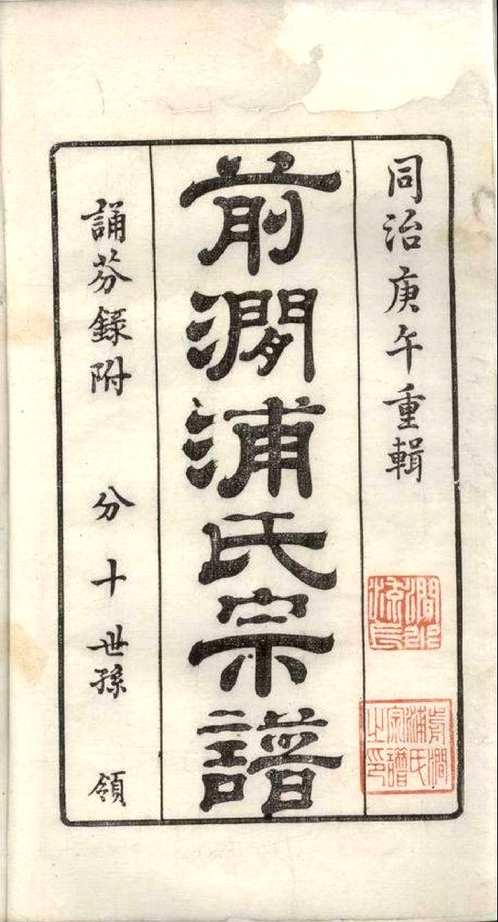 同治庚午重輯
前澗浦氏宗譜
誦芬錄附 分 十世孫 領
前澗浦氏宗譜之印